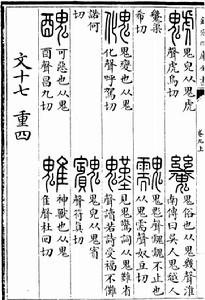 欽定四庫全書
卷九上
鬼皃从鬼虎
聲虎烏切
鬼俗也从鬼幾聲淮
南傳曰吳人鬼越人
希切
鬼鬽聲䰰䰰不止也
从鬼需聲奴豆切
鬼變也从鬼
化聲呼駕切
見鬼驚詞从鬼難省
聲讀若詩受福不儺
諾何
切
鬼皃从鬼賓
聲符真切
醜
可惡也从鬼
酉聲昌九切
魋
神獸也从鬼
隹聲杜回切
文十七 重四